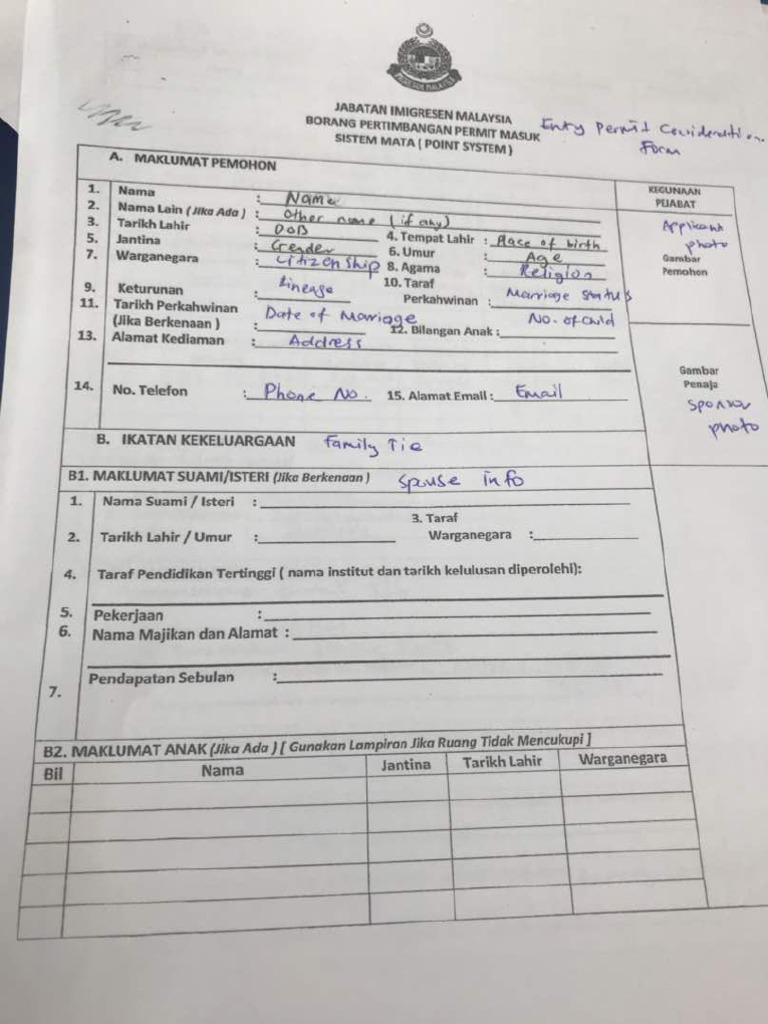 JABATAN IMIGRESEN MALAYSIA
BORANG PERTIMBANGAN PERMIT MASUK
SISTEM MATA ( POINT SYSTEM )
Entry Permit Consideration
Form
A. MAKLUMAT PEMOHON
KEGUNAAN
PEJABAT
1. Nama : Name
2. Nama Lain (Jika Ada ) : Other name (if any)
3. Tarikh Lahir : DOB 4. Tempat Lahir : Place of birth
5. Jantina : Gender 6. Umur : Age
7. Warganegara : Citizenship 8. Agama : Religion
9. Keturunan : Lineage 10. Taraf
Perkahwinan : Marriage status
11. Tarikh Perkahwinan : Date of Marriage 12. Bilangan Anak : No. of Child
(Jika Berkenaan )
13. Alamat Kediaman : Address
14. No. Telefon : Phone No. 15. Alamat Email : Email
Applicant
photo
Gambar
Pemohon
Gambar
Penaja
Sponsor
photo
B. IKATAN KEKELUARGAAN Family Tie
B1. MAKLUMAT SUAMI/ISTERI (Jika Berkenaan ) Spouse info
1. Nama Suami / Isteri :
2. Tarikh Lahir / Umur : 3. Taraf
Warganegara :
4. Taraf Pendidikan Tertinggi ( nama institut dan tarikh kelulusan diperolehi):
5. Pekerjaan :
6. Nama Majikan dan Alamat :
7. Pendapatan Sebulan :
B2. MAKLUMAT ANAK (Jika Ada ) [ Gunakan Lampiran Jika Ruang Tidak Mencukupi ]
Bil Nama Jantina Tarikh Lahir Warganegara